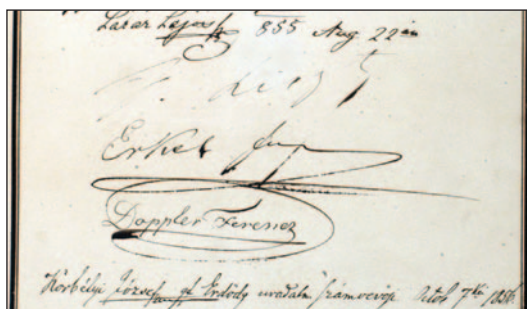 Lázár Lajos 855 Aug 22én
F. Liszt
Erkel
Doppler Ferenc
Körbélyi József gf. Erdődy uradalmi számvevője Octob 7ki 1856